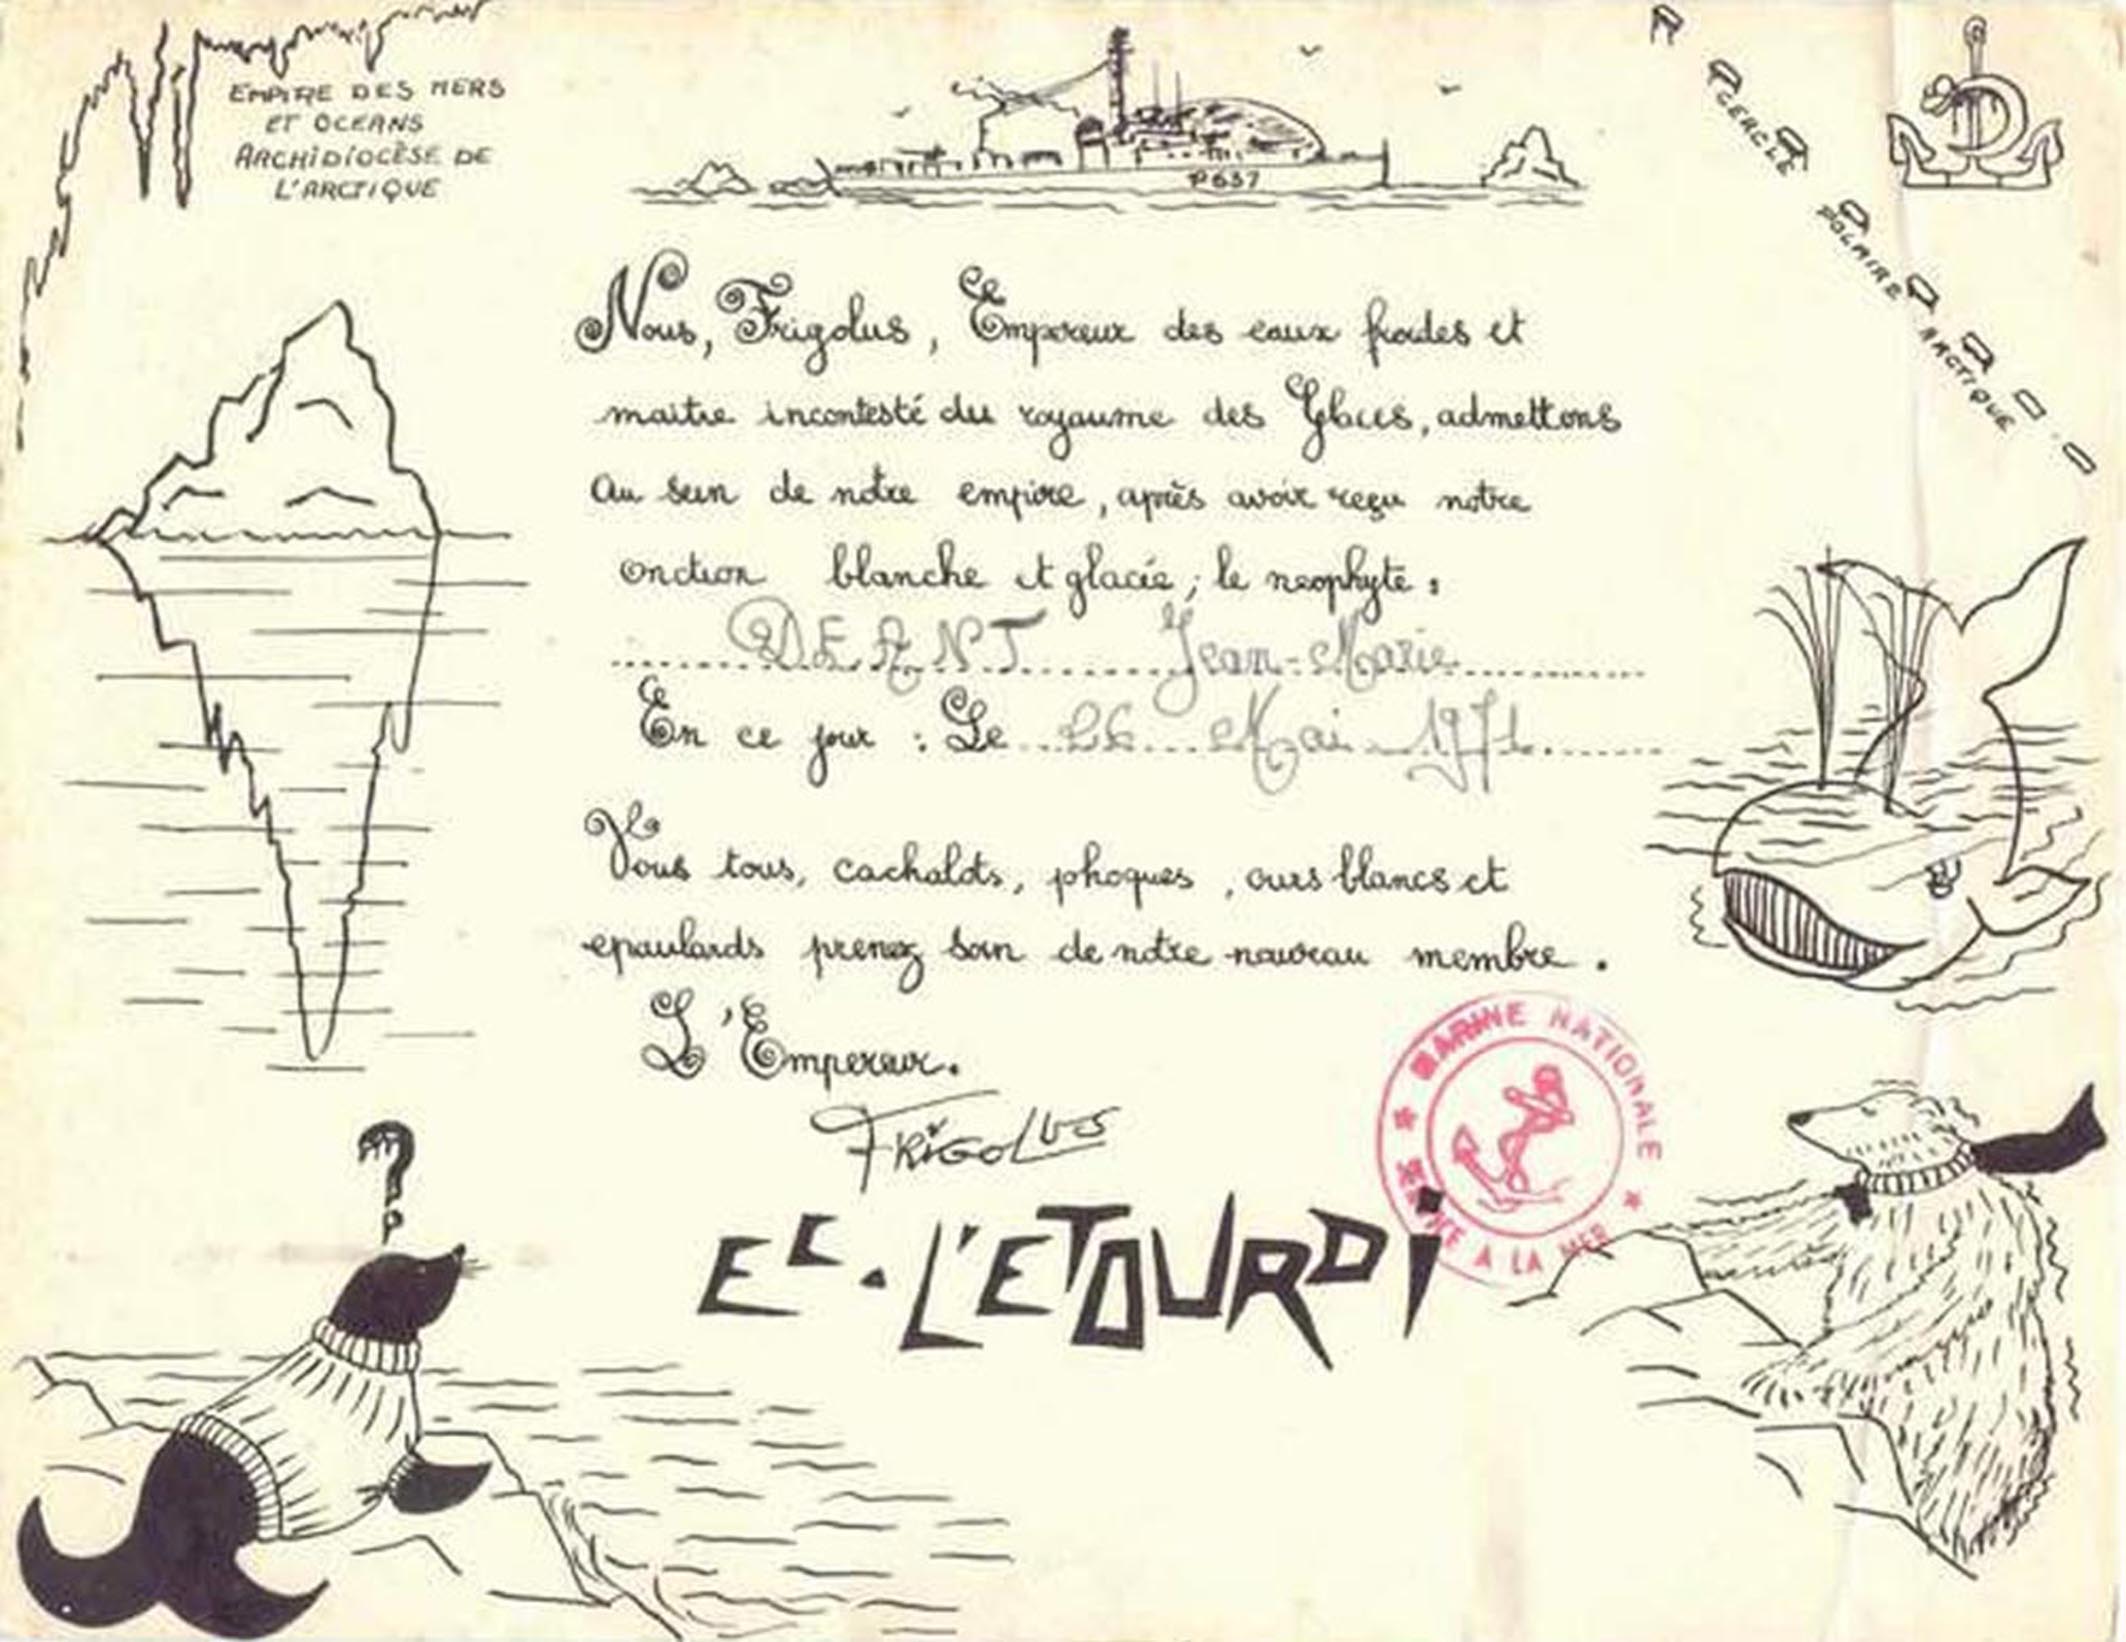 EMPIRE DES MERS
ET OCEANS
ARCHIDIOCÈSE DE
L'ARCTIQUE
P637
CERCLE POLAIRE ARCTIQUE
Nous, Frigolus, Empereur des eaux froides et
maitre incontesté du royaume des Glaces, admettons
au sein de notre empire, après avoir reçu notre
onction blanche et glacée ; le neophyte :
DEANT Jean-Marie
En ce jour : Le 26 Mai 1971.
Vous tous, cachalots, phoques, ours blancs et
epaulards prenez soin de notre nouveau membre.
L'Empereur.
FRIGOLUS
MARINE NATIONALE
SERVICE A LA MER
EC. L'ETOURDI
?